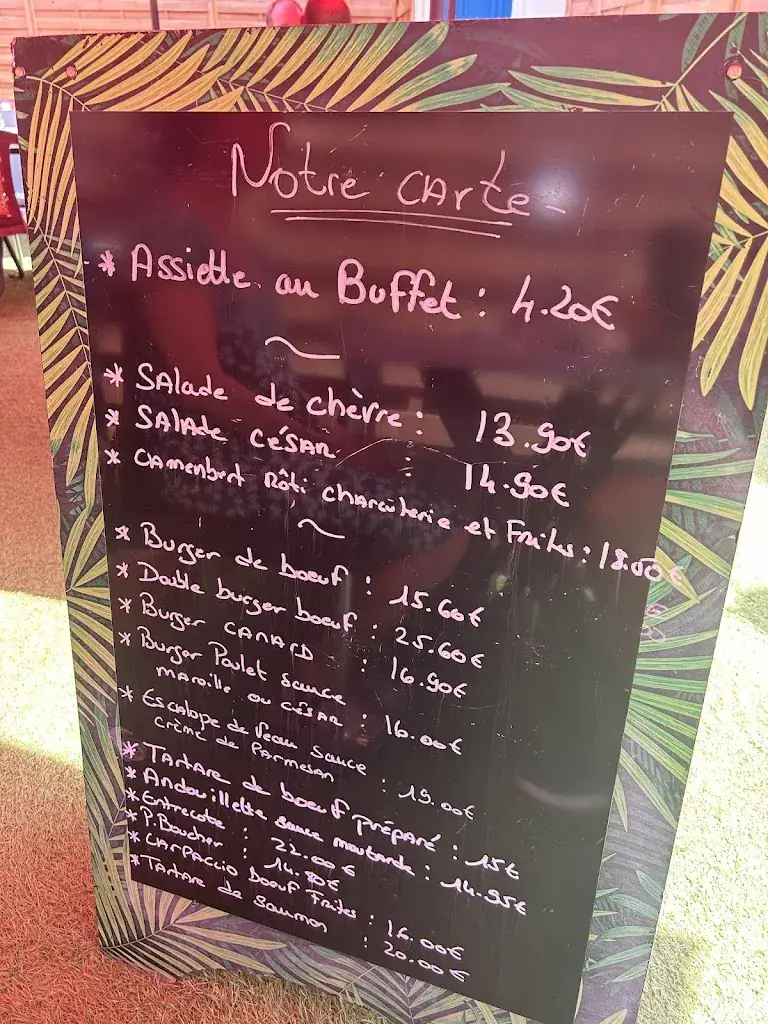 Notre carte
* Assiette au Buffet : 4.20€
* Salade de chèvre : 13.90€
* Salade César : 14.90€
* Camembert Rôti charcuterie et Frites :
* Burger de boeuf : 15.60€
* Double burger boeuf : 25.60€
* Burger CANARD : 16.90€
* Burger Poulet sauce
maroille ou César : 16.00€
* Escalope de Veau sauce
crème de Parmesan : 19.00€
* Tartare de boeuf préparé : 15€
* Andouillette sauce moutarde : 14.95€
* Entrecote : 22.00€
* P.Boucher : 14.80€
* Carpaccio boeuf Frites : 16.00€
* Tartare de saumon : 20.00€